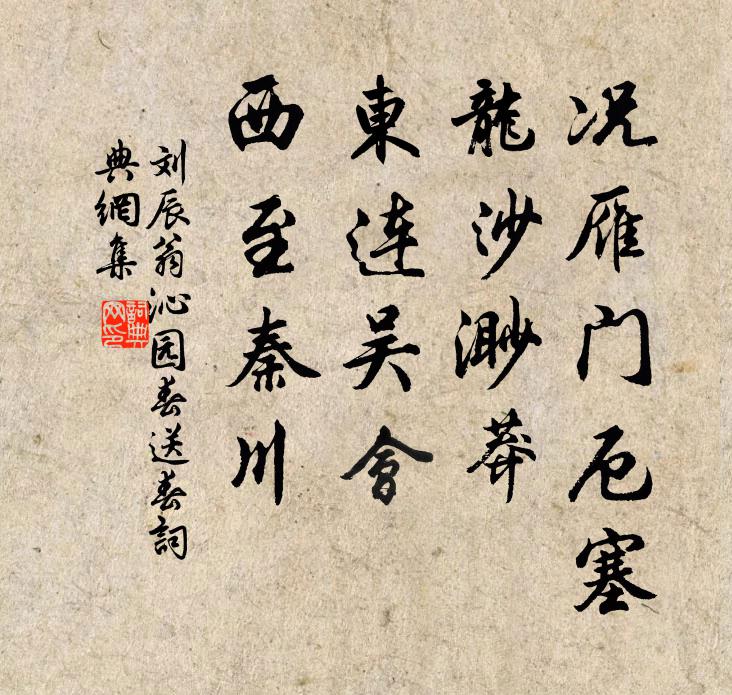 况雁门厄塞
龍沙渺莽
東連吴會
西至秦川
刘辰翁沁园春送春詞
典網集
詞典网印